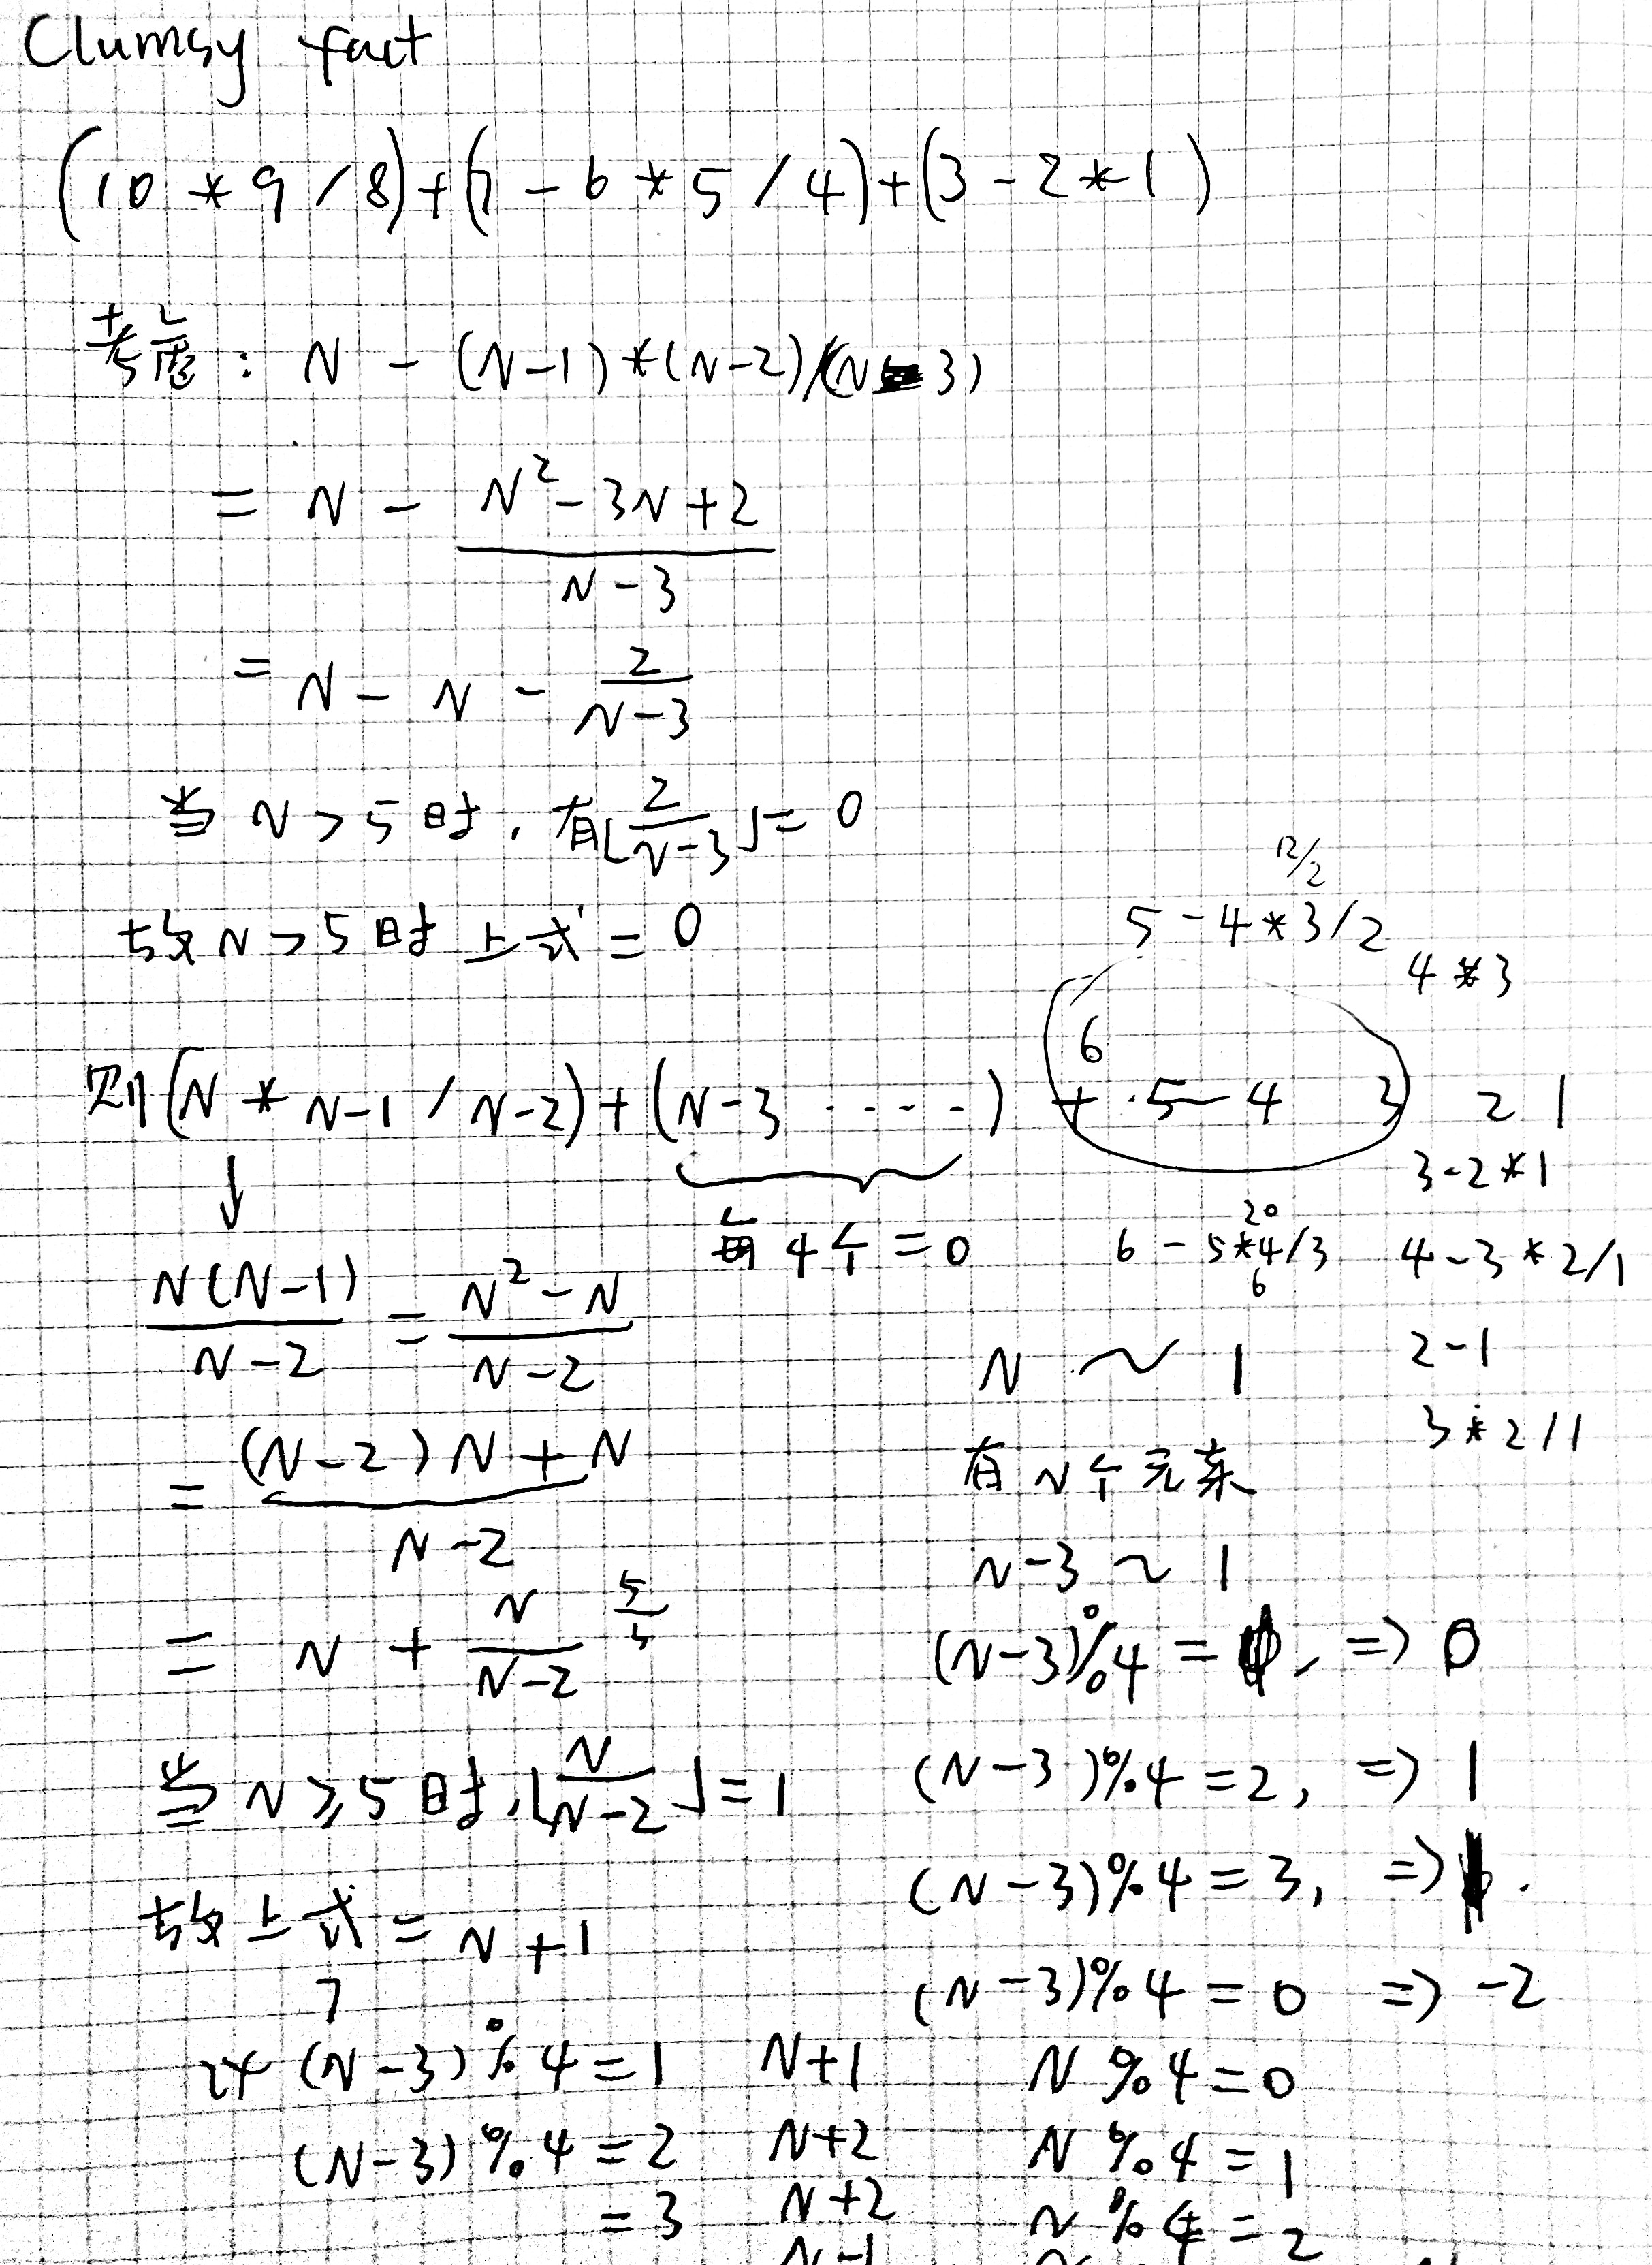 Clumsy fact
(10 * 9 / 8) + (7 - 6 * 5 / 4) + (3 - 2 * 1)
考虑: N - (N-1) * (N-2) / (N-3)
= N - (N² - 3N + 2) / (N-3)
= N - N - 2/(N-3)
当 N > 5 时, 有 ⌊2/(N-3)⌋ = 0
故 N > 5 时 上式 = 0
12/2
5 - 4 * 3 / 2
4 * 3
6
则 (N * N-1 / N-2) + (N-3 ·····) + ·5 - 4 3 2 1
↓
每 4 个 = 0
3 - 2 * 1
20
6 - 5 * 4 / 3
6
4 - 3 * 2 / 1
2 - 1
3 * 2 / 1
N(N-1)/(N-2) = (N² - N)/(N-2)
= ((N-2) N + N)/(N-2)
= N + N/(N-2)
当 N ≥ 5 时, ⌊N/(N-2)⌋ = 1
故上式 = N + 1
7
N ~ 1
有 N 个元素
N-3 ~ 1
(N-3)%4 = , => 0
(N-3)%4 = 2, => 1
(N-3)%4 = 3, => .
(N-3)%4 = 0 => -2
(N-3)%4 = 1 N+1 N%4 = 0
(N-3)%4 = 2 N+2 N%4 = 1
= 3 N+2 N%4 = 2
N-1